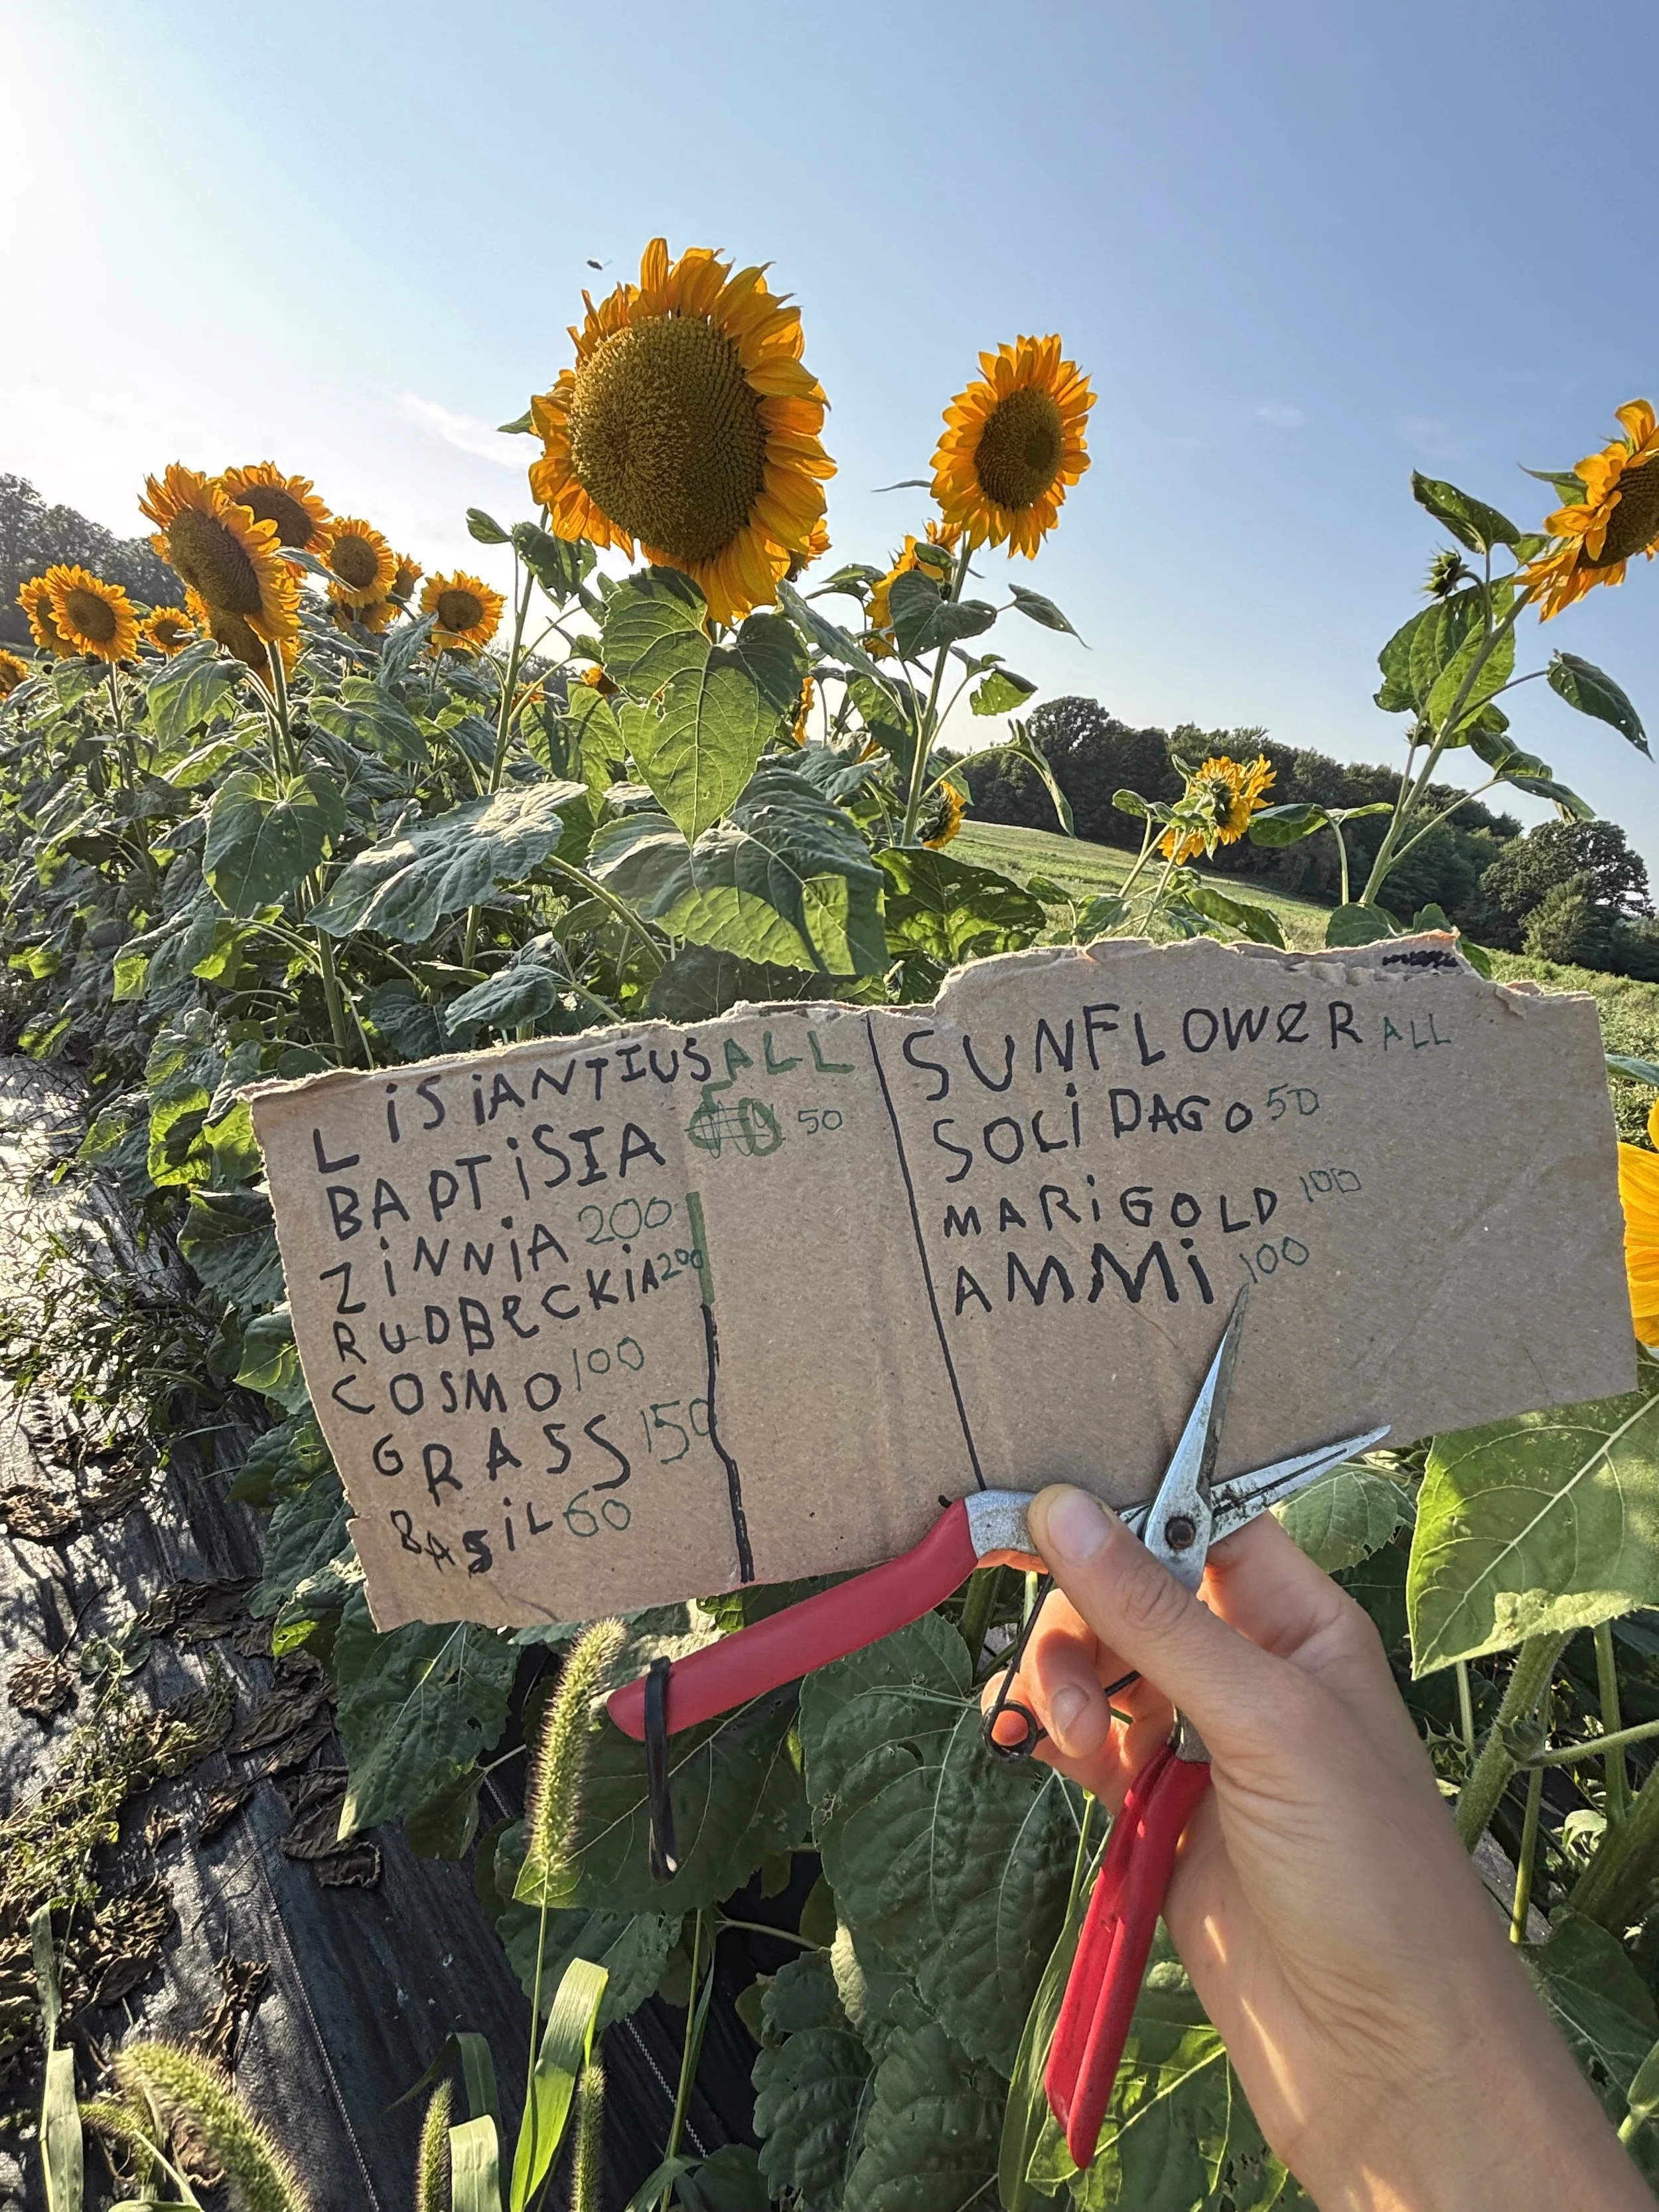 LiSiANTIUS ALL
BAPTiSIA 50
ZiNNiA 200
RUDBeCKiA 200
COSMO 100
GRASS 150
BASiL 60
SUNFLOWeR ALL
SOLiDAGO 50
MARiGOLD 100
AMMi 100